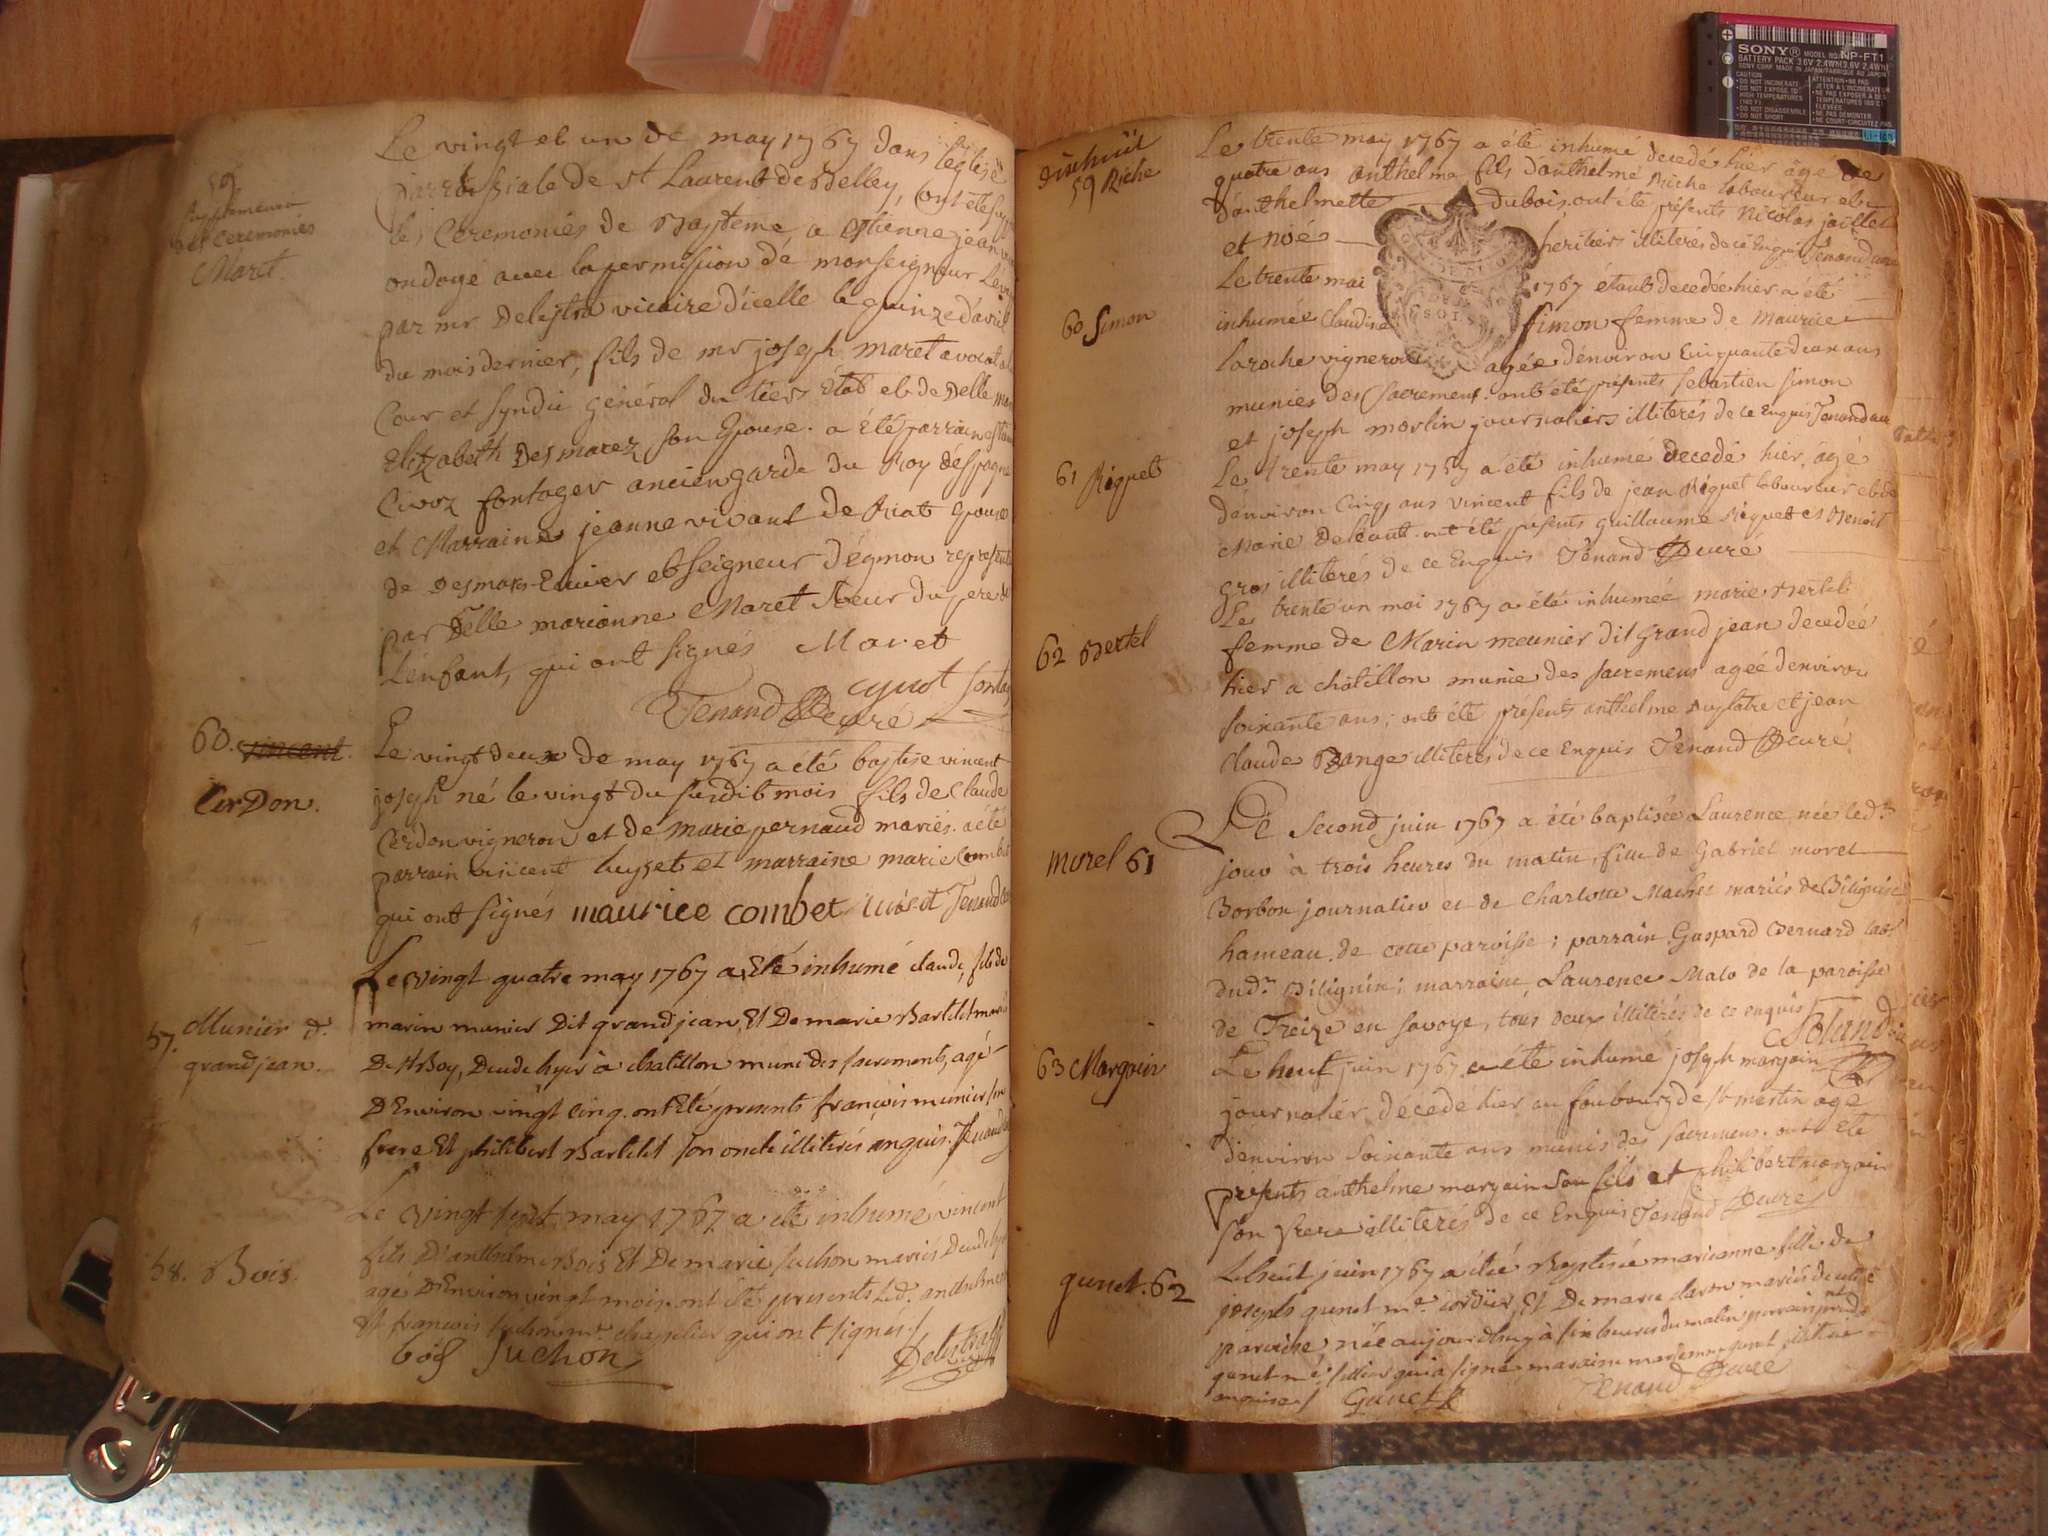 59
supplement
des Ceremonies
Maret.
Le vingt et un de may 1767 dans l'église
parroissiale de st Laurent de Belley, ont été supp
les Ceremonies de Baptême, a Estienne jean
ondoyé avec la permission de monseigneur L'ev
par mr Delestra vicaire d'icelle le quinze d'avril
du mois dernier, fils de mr joseph maret avocat a la
Cour et syndic général du tiers état et de Delle
Elizabeth Desmarez son Epouse. a été parrain
Civoz fontager ancien garde du Roy d'Espagne
et Marraine jeanne vivant de Riat epouse
de Desmares Ecuier et seigneur d'égmon represent
par Delle marianne Maret soeur du pere de
L'enfant, qui ont signés Maret
Tenand Curé
60. vincent.
Cerdon.
Le vingt deux de may 1767 a été baptisé vincent
joseph né le vingt du susdit mois fils de Claude
Cerdon vigneron et de marie pernaud mariés. a été
parrain vincent huyset et marraine marie Combet
qui ont signés maurice combet Tenand
57. Munier d.
grandjean.
Le vingt quatre may 1767 a Eté inhumé claude, fils de
marin munier Dit grandjean, Et De marie Bartelet
De Boy, Decedé hyer à chatillon muni des sacrements, agé
D'Environ vingt cinq. ont Eté presents francois munier son
frere Et philibert Bartelet son oncle illiterés enquis. Tenand
58. Bois.
Le vingt sept may 1767 a été inhumé vincent
fils D'anthelme Bois Et De marie suchon mariés Decedé
agé D'Environ vingt mois. ont été presents led. anthelme
Et francois suchon mr. chapelier qui ont signés
bois Suchon Delestraz
dixhuit
59 Riche
Le trente may 1767 a été inhumé decedé hier âgé de
quatre ans anthelme fils d'anthelme Riche laboureur et
d'anthelmette Dubois. ont été présents Nicolas jaillet
et noé héritiers illiterés de ce Enquis Tenand curé
60 Simon
Le trente mai 1767 étant decedée hier a été
inhumée Claudine Simon femme de Maurice
Laroche vigneron agée d'environ Cinquante deux ans
munies des Sacremens. ont été présents Sebastien Simon
et joseph morlin journaliers illiterés de ce Enquis Tenand curé
61 Riquet
Le trente may 1767 a été inhumé decedé hier, agé
d'environ cinq ans vincent fils de jean Riquet laboureur et de
Marie Delécaut. ont été présents guillaume Riquet et Benoit
gros illiterés de ce Enquis Tenand Curé
62 Bertel
Le trente un mai 1767 a été inhumée marie Bertel
femme de Marin meunier dit Grand jean decedée
hier a châtillon munie des sacremens ageé d'environ
soixante ans; ont été présents anthelme Duplatre et jean
Claude Bange illiterés de ce Enquis Tenand Curé
Morel 61
Le Second juin 1767 a été baptisée Laurence née led.t
jour à trois heures du matin, fille de Gabriel morel
Borbon journalier et de Charlotte Maches mariés de Bilignin
hameau de cette paroisse; parrain Gaspard Bernard lab.
dud.t Bilignin; marraine, Laurence Malo de la paroisse
de Treize en Savoye, tous deux illitérés de ce enquis
63 Margain
Le huit juin 1767 a été inhumé joseph margain
journalier, décedé hier au faubourg de st mertin agé
d'environ Soixante ans munis des Sacremens. ont été
présents anthelme margain son fils et philibert margain
son frere illiterés de ce Enquis Tenand Curé
gunet. 62
Le huit juin 1767 a été Baptisée marianne fille de
joseph gunet me. cordier, Et De marie claron mariés de cette
paroisse née aujourdhuy à six heures du matin parrain
gunet me. sellier qui a signé maraine marianne gunet
enquise Gunet
Tenand Curé
SONY® MODEL NO. NP-FT1
BATTERY PACK 3.6V 2.4WH
SONY CORP. MADE IN JAPAN/FABRIQUÉ AU JAPON
CAUTION
• DO NOT INCINERATE
• DO NOT EXPOSE TO
HIGH TEMPERATURES
• DO NOT DISASSEMBLE
• DO NOT SHORT
ATTENTION • NE PAS
JETER À L'INCINÉRATEUR
• NE PAS EXPOSER À DES
TEMPÉRATURES
ÉLEVÉES
• NE PAS DÉMONTER
• NE COURT-CIRCUITEZ PAS
Li-ion